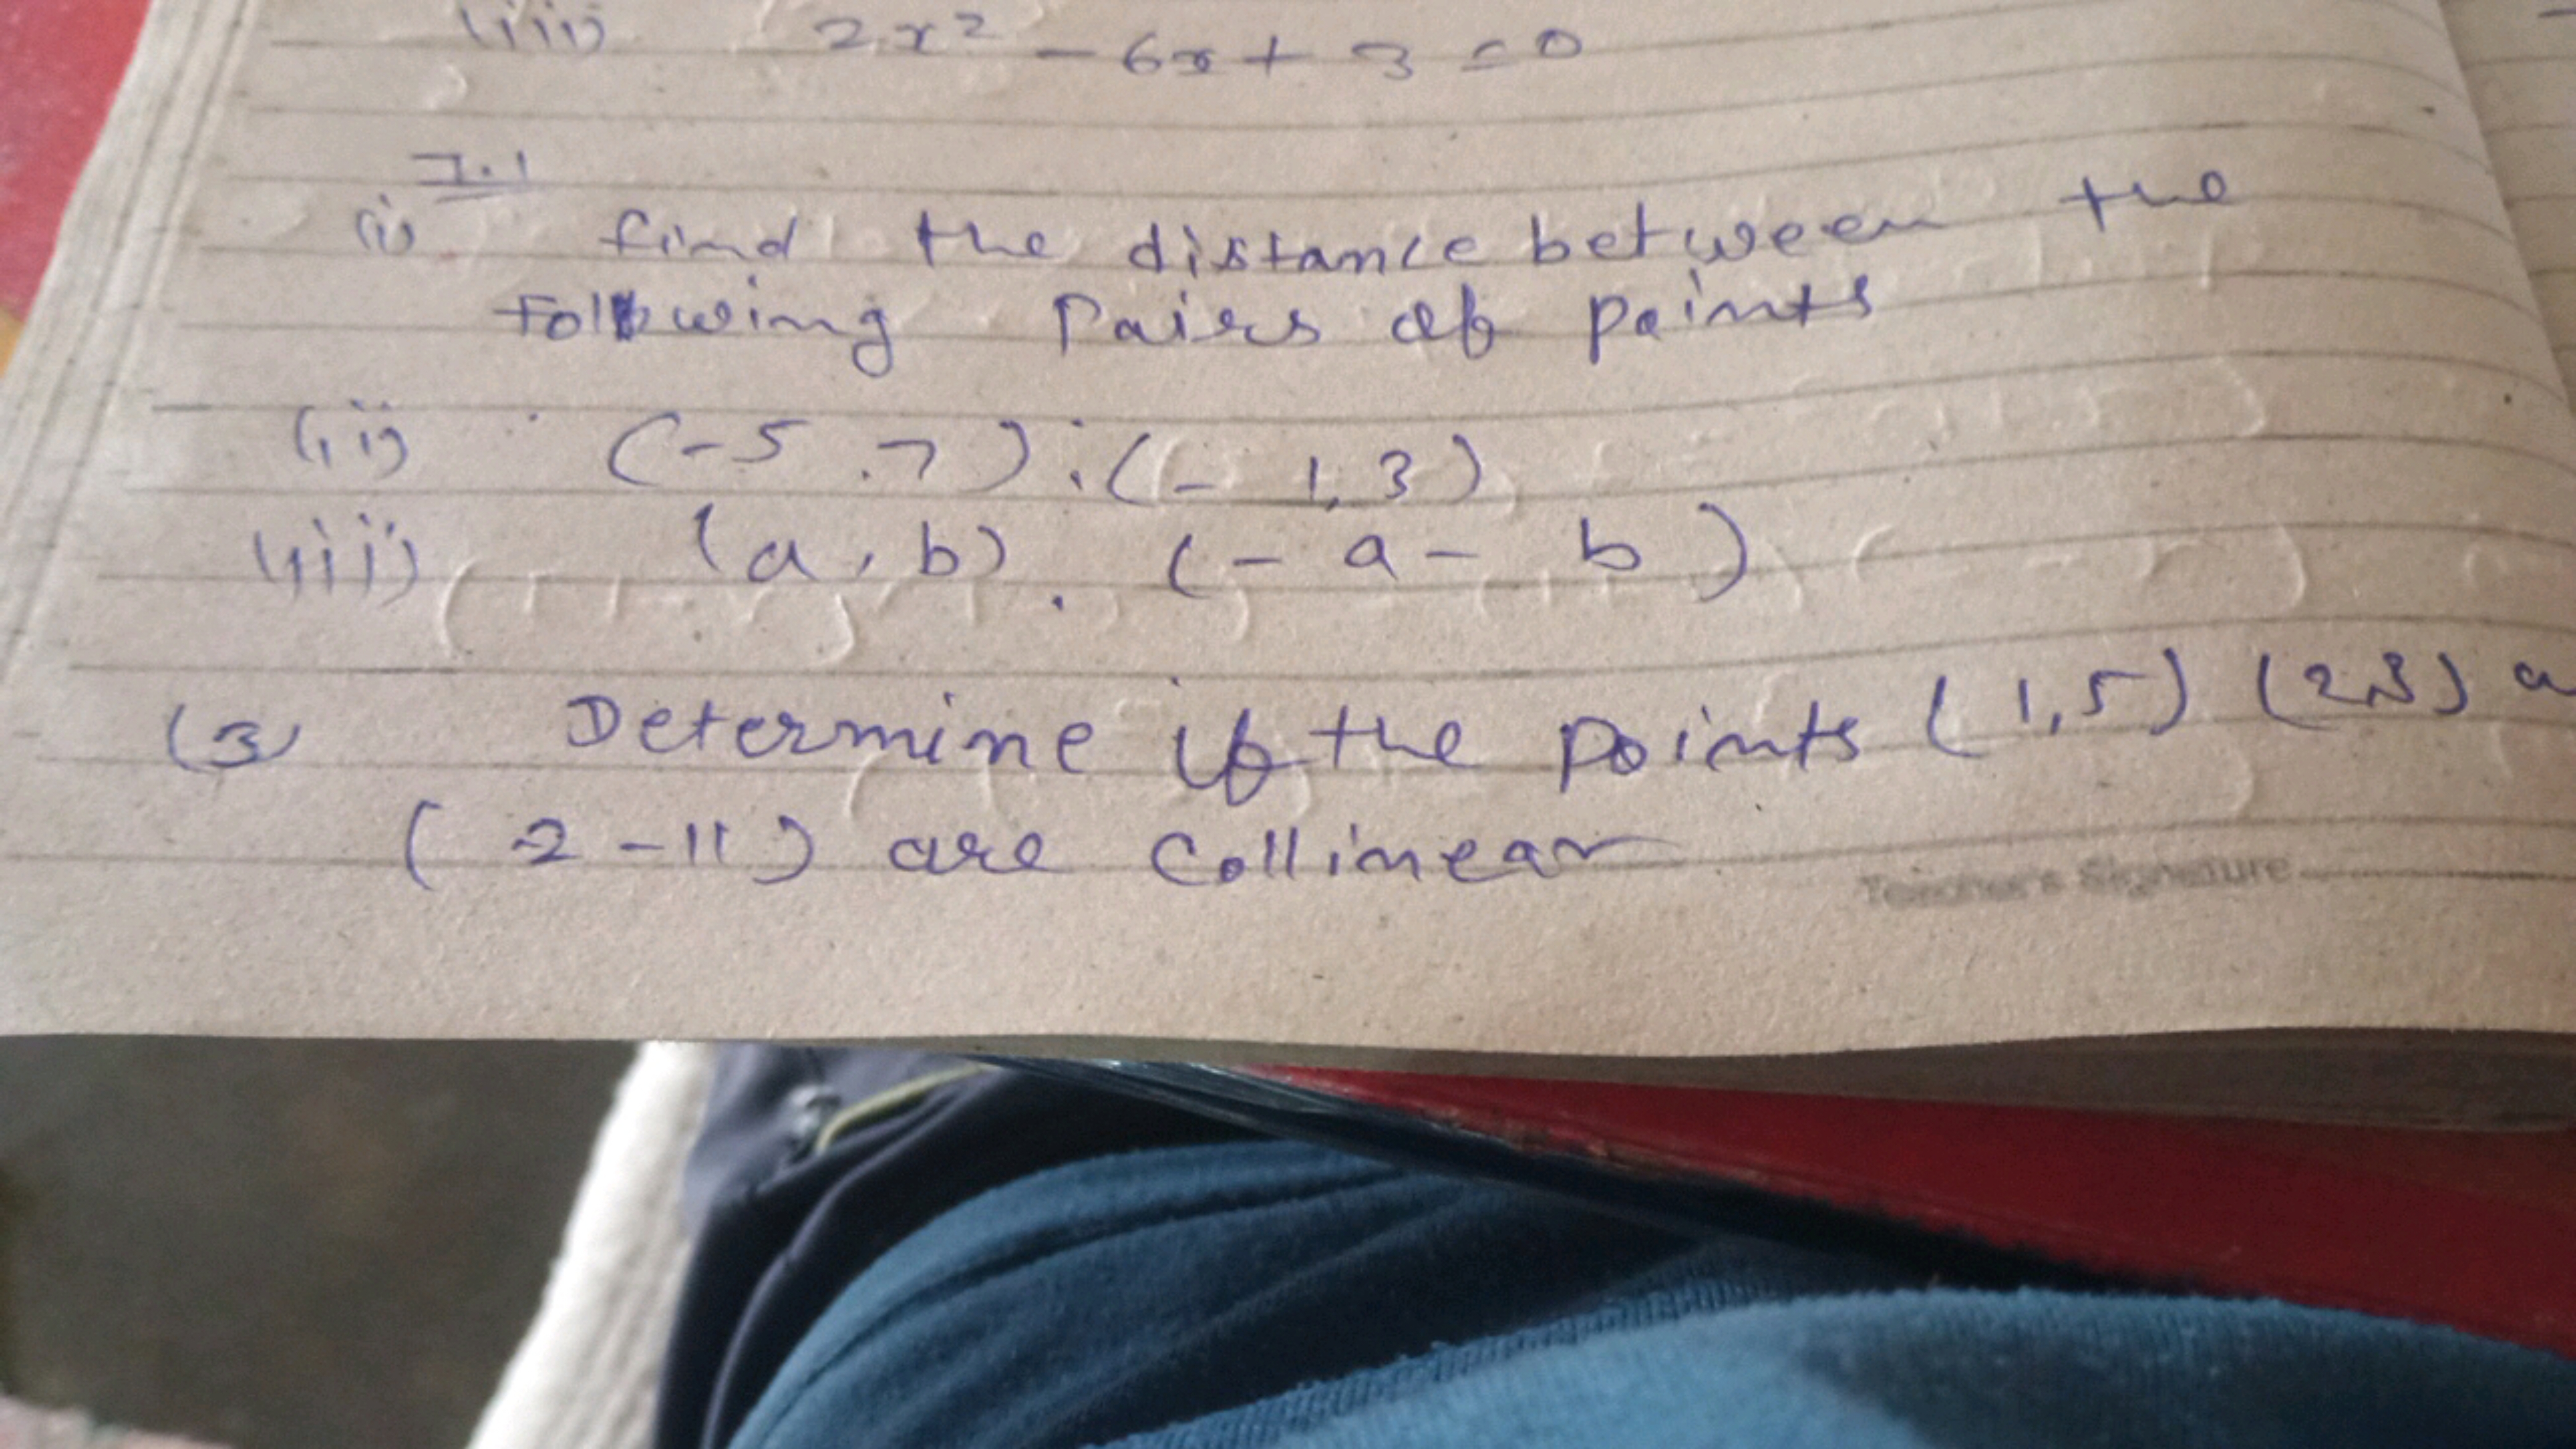 (iii) 2x² - 6x + 3 = 0
7.1
(i) find the distance between the
Following Pairs of points
(ii) (-5,7);(- 1,3)
(iii) (a,b), (- a - b)
(3) Determine if the points (1,5) (2,3) a
(2 -11) are Collinear
Teacher's Signature